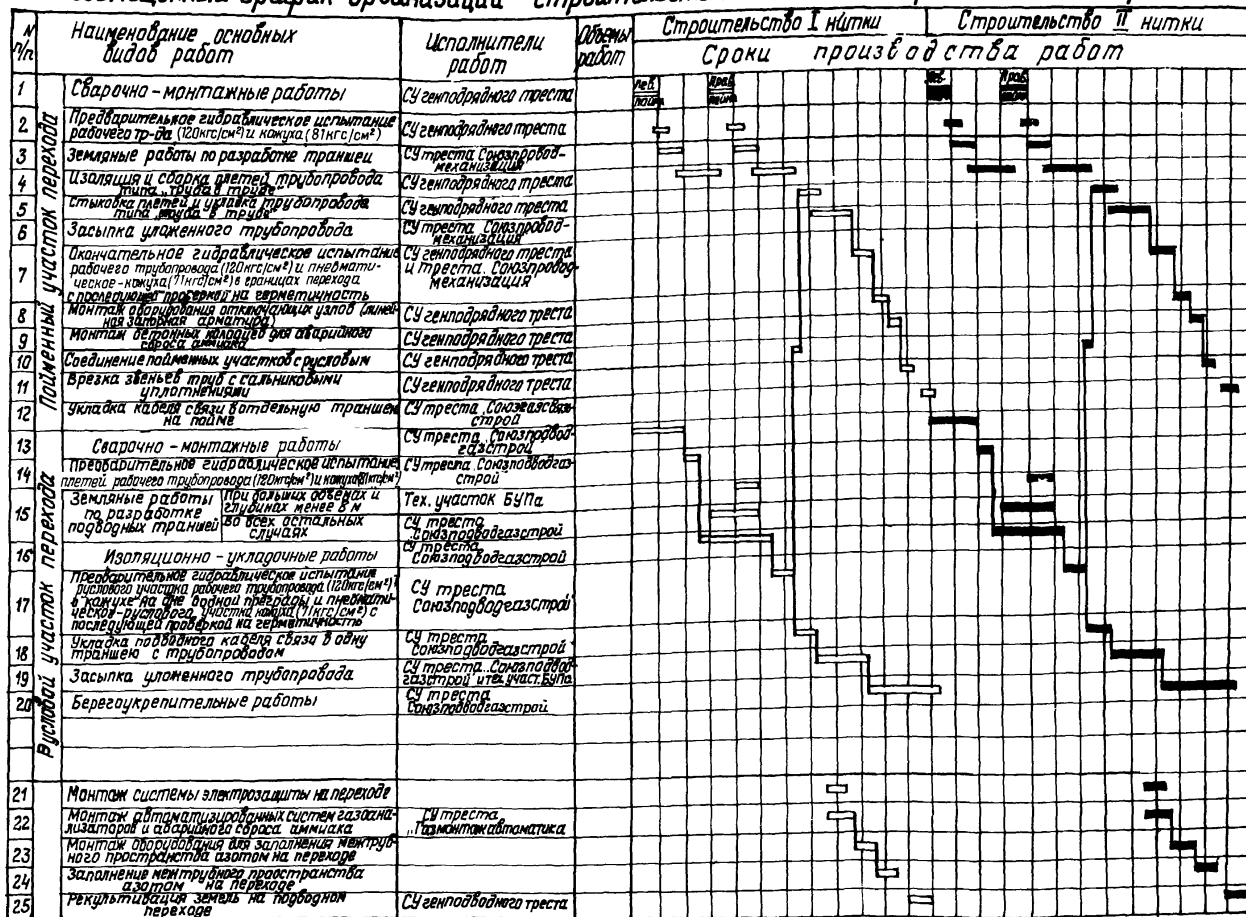 График организации
N
п/п
Наименование основных
видов работ
Исполнители
работ
Объемы
работ
Строительство I нитки
Строительство II нитки
Сроки производства работ
Пойменный участок перехода
Лев.
пойма
Прав.
пойма
Лев.
Прав.
1 Сварочно-монтажные работы СУ генподрядного треста
2 Предварительное гидравлическое испытание
рабочего тр-да (120кгс/см²) и кожуха (81кгс/см²) СУ генподрядного треста
3 Земляные работы по разработке траншеи СУ треста „Союзпровод-
механизация"
4 Изоляция и сборка плетей трубопровода
типа „труба в трубе" СУ генподрядного треста
5 Стыковка плетей и укладка трубопровода
типа „труба в трубе" СУ генподрядного треста
6 Засыпка уложенного трубопровода СУ треста „Союзпровод-
механизация"
7 Окончательное гидравлическое испытание
рабочего трубопровода (120кгс/см²) и пневмати-
ческое-кожуха (71кгс/см²) в границах перехода
с последующей проверкой на герметичность
СУ генподрядного треста
и треста „Союзпровод-
механизация"
8 Монтаж оборудования отключающих узлов (линей-
ная запорная арматура) СУ генподрядного треста
9 Монтаж бетонных колодцев для аварийного
сброса аммиака СУ генподрядного треста
10 Соединение пойменных участков с русловым СУ генподрядного треста
11 Врезка звеньев труб с сальниковыми
уплотнениями СУ генподрядного треста
12 Укладка кабеля связи в отдельную траншею
на пойме СУ треста „Союзгазсвязь-
строй
Русловой участок перехода
13 Сварочно-монтажные работы СУ треста „Союзподвод-
газстрой
14 Предварительное гидравлическое испытание
плетей рабочего трубопровода (120кгс/см²) и кожуха (81кгс/см²) СУ треста „Союзподводгаз-
строй
15 Земляные работы
по разработке
подводных траншей
При больших объемах и
глубинах менее 8 м Тех. участок БУПа
Во всех остальных
случаях СУ треста
Союзподводгазстрой
16 Изоляционно-укладочные работы СУ треста
Союзподводгазстрой
17 Предварительное гидравлическое испытание
руслового участка рабочего трубопровода (120кгс/см²)
в кожухе на дне водной преграды и пневмати-
ческое-руслового участка кожуха (71кгс/см²) с
последующей проверкой на герметичность
СУ треста
Союзподводгазстрой
18 Укладка подводного кабеля связи в одну
траншею с трубопроводом СУ треста
Союзподводгазстрой
19 Засыпка уложенного трубопровода СУ треста „Союзподвод-
газстрой и тех. участ. БУПа
20 Берегоукрепительные работы СУ треста
Союзподводгазстрой
21 Монтаж системы электрозащиты на переходе
22 Монтаж автоматизированных систем газоана-
лизаторов и аварийного сброса аммиака СУ треста
„Газмонтажавтоматика
23 Монтаж оборудования для заполнения межтруб-
ного пространства азотом на переходе
24 Заполнение межтрубного пространства
азотом на переходе
25 Рекультивация земель на подводном
переходе СУ генподводного треста